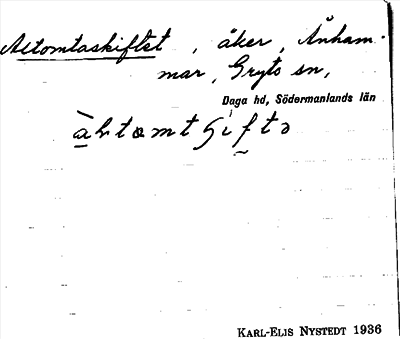 Altomtaskiftet, åker, Änham-
mar, Gryts sn,
Daga hd, Södermanlands län
KARL-ELIS NYSTEDT 1936